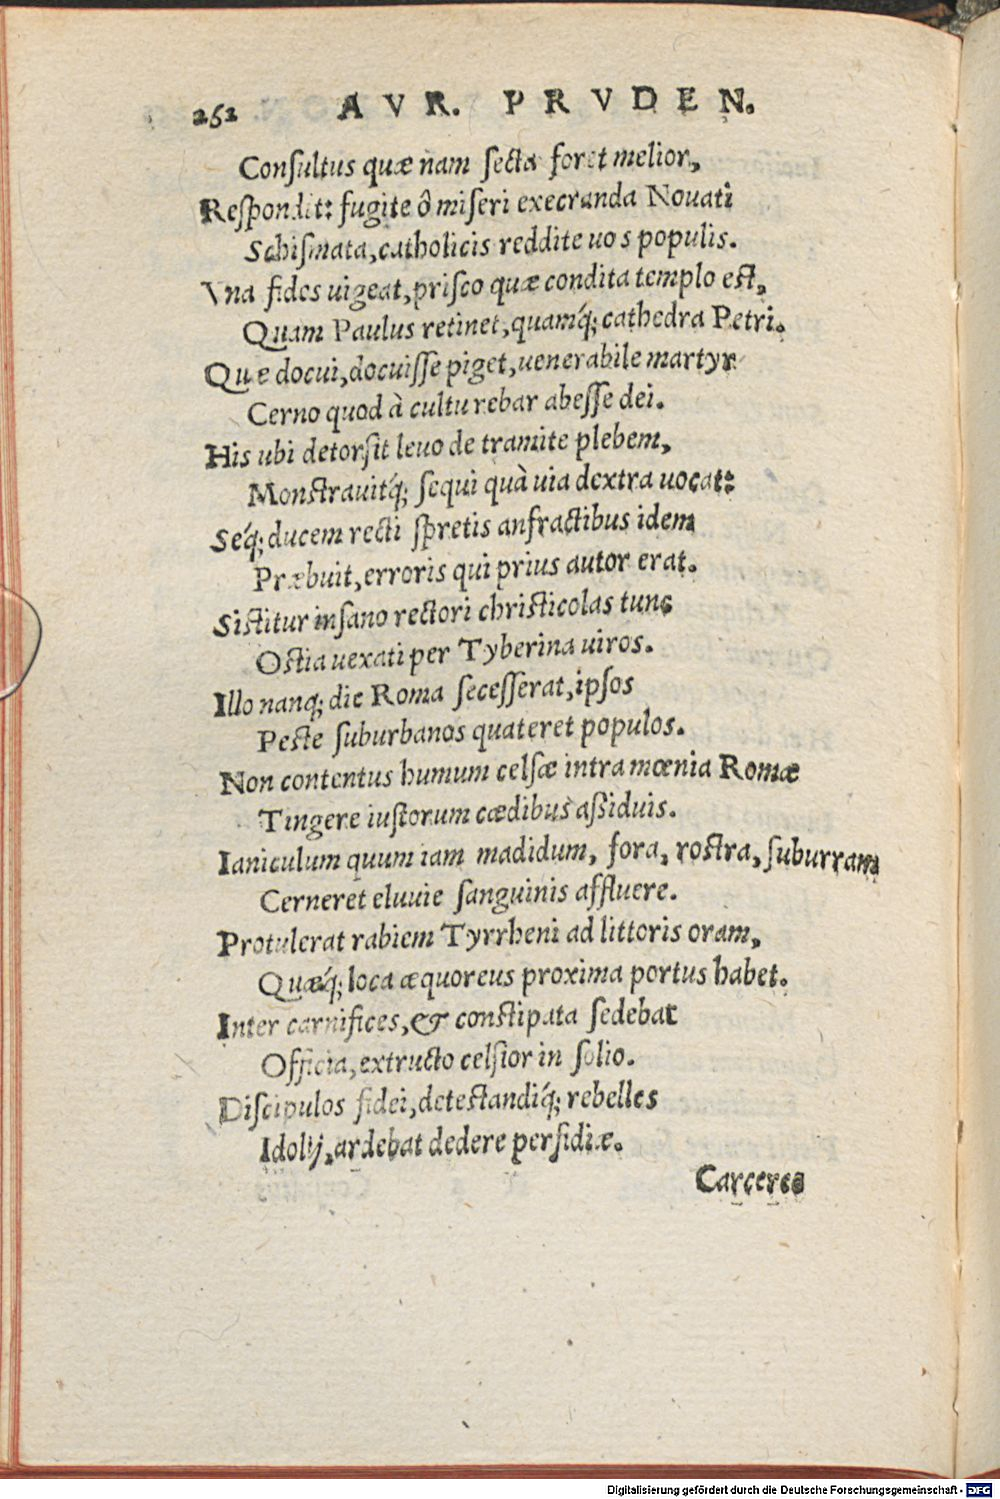 252 AVR. PRVDEN.
Consultus quæ nam secta foret melior,
Respondit: fugite ô miseri execranda Nouati
Schismata, catholicis reddite uos populis.
Vna fides uigeat, prisco quæ condita templo est,
Quam Paulus retinet, quamq́; cathedra Petri.
Quæ docui, docuisse piget, uenerabile martyr
Cerno quod à cultu rebar abesse dei.
His ubi detorsit leuo de tramite plebem,
Monstrauitq́; sequi quà uia dextra uocat:
Seq́; ducem recti spretis anfractibus idem
Præbuit, erroris qui prius autor erat.
Sistitur insano rectori christicolas tunc
Ostia uexati per Tyberina uiros.
Illo nanq; die Roma secesserat, ipsos
Peste suburbanos quateret populos.
Non contentus humum celsæ intra mœnia Romæ
Tingere iustorum cædibus aßiduis.
Ianiculum quum iam madidum, fora, rostra, suburram
Cerneret eluuie sanguinis affluere.
Protulerat rabiem Tyrrheni ad littoris oram,
Quæq́; loca æquoreus proxima portus habet.
Inter carnifices, & constipata sedebat
Officia, extructo celsior in solio.
Discipulos fidei, detestandiq́; rebelles
Idolij, ardebat dedere persidiæ.
Carceres
Digitalisierung gefördert durch die Deutsche Forschungsgemeinschaft - DFG